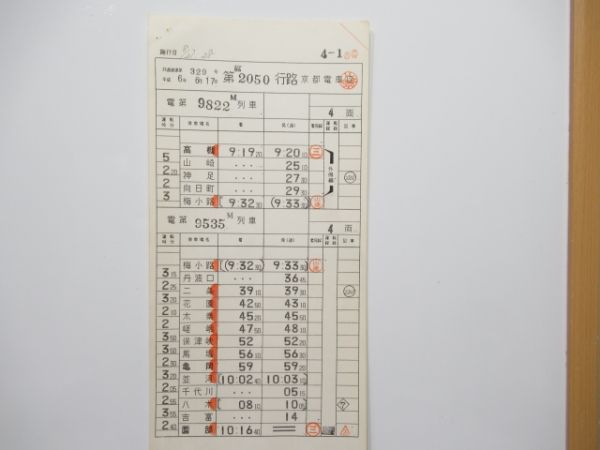 施行日
4-1
329号
平成 6年 6月17日
第2050行路 京都電車区
電第 9822M列車
4両
運転時分 停車場名 着 発(通) 着発線 記事
高槻 9:19 20 9:20 10 三
5 山崎 ... 25 10
2 20 神足 ... 27 30
2 向日町 ... 29 30
3 梅小路 (9:32 30 (9:33 30)
外側線
電第 9535M列車
4両
運転時分 停車場名 着 発(通) 着発線 記事
梅小路 (9:32 30) 9:33 30)
3 15 丹波口 ... 36 45
2 25 二条 39 10 39 30
3 20 花園 42 50 43 10
2 20 太秦 45 20 45 50
2 嵯峨 47 50 48 10
3 50 保津峡 52 52 20
3 50 馬堀 56 10 56 30
2 30 亀岡 59 59 20
3 20 並河 (10:02 40 (10:03 10)
2 05 千代川 ... 05 15
2 55 八木 08 10 10 05
3 55 吉富 ... 14
2 40 園部 10:16 40 三